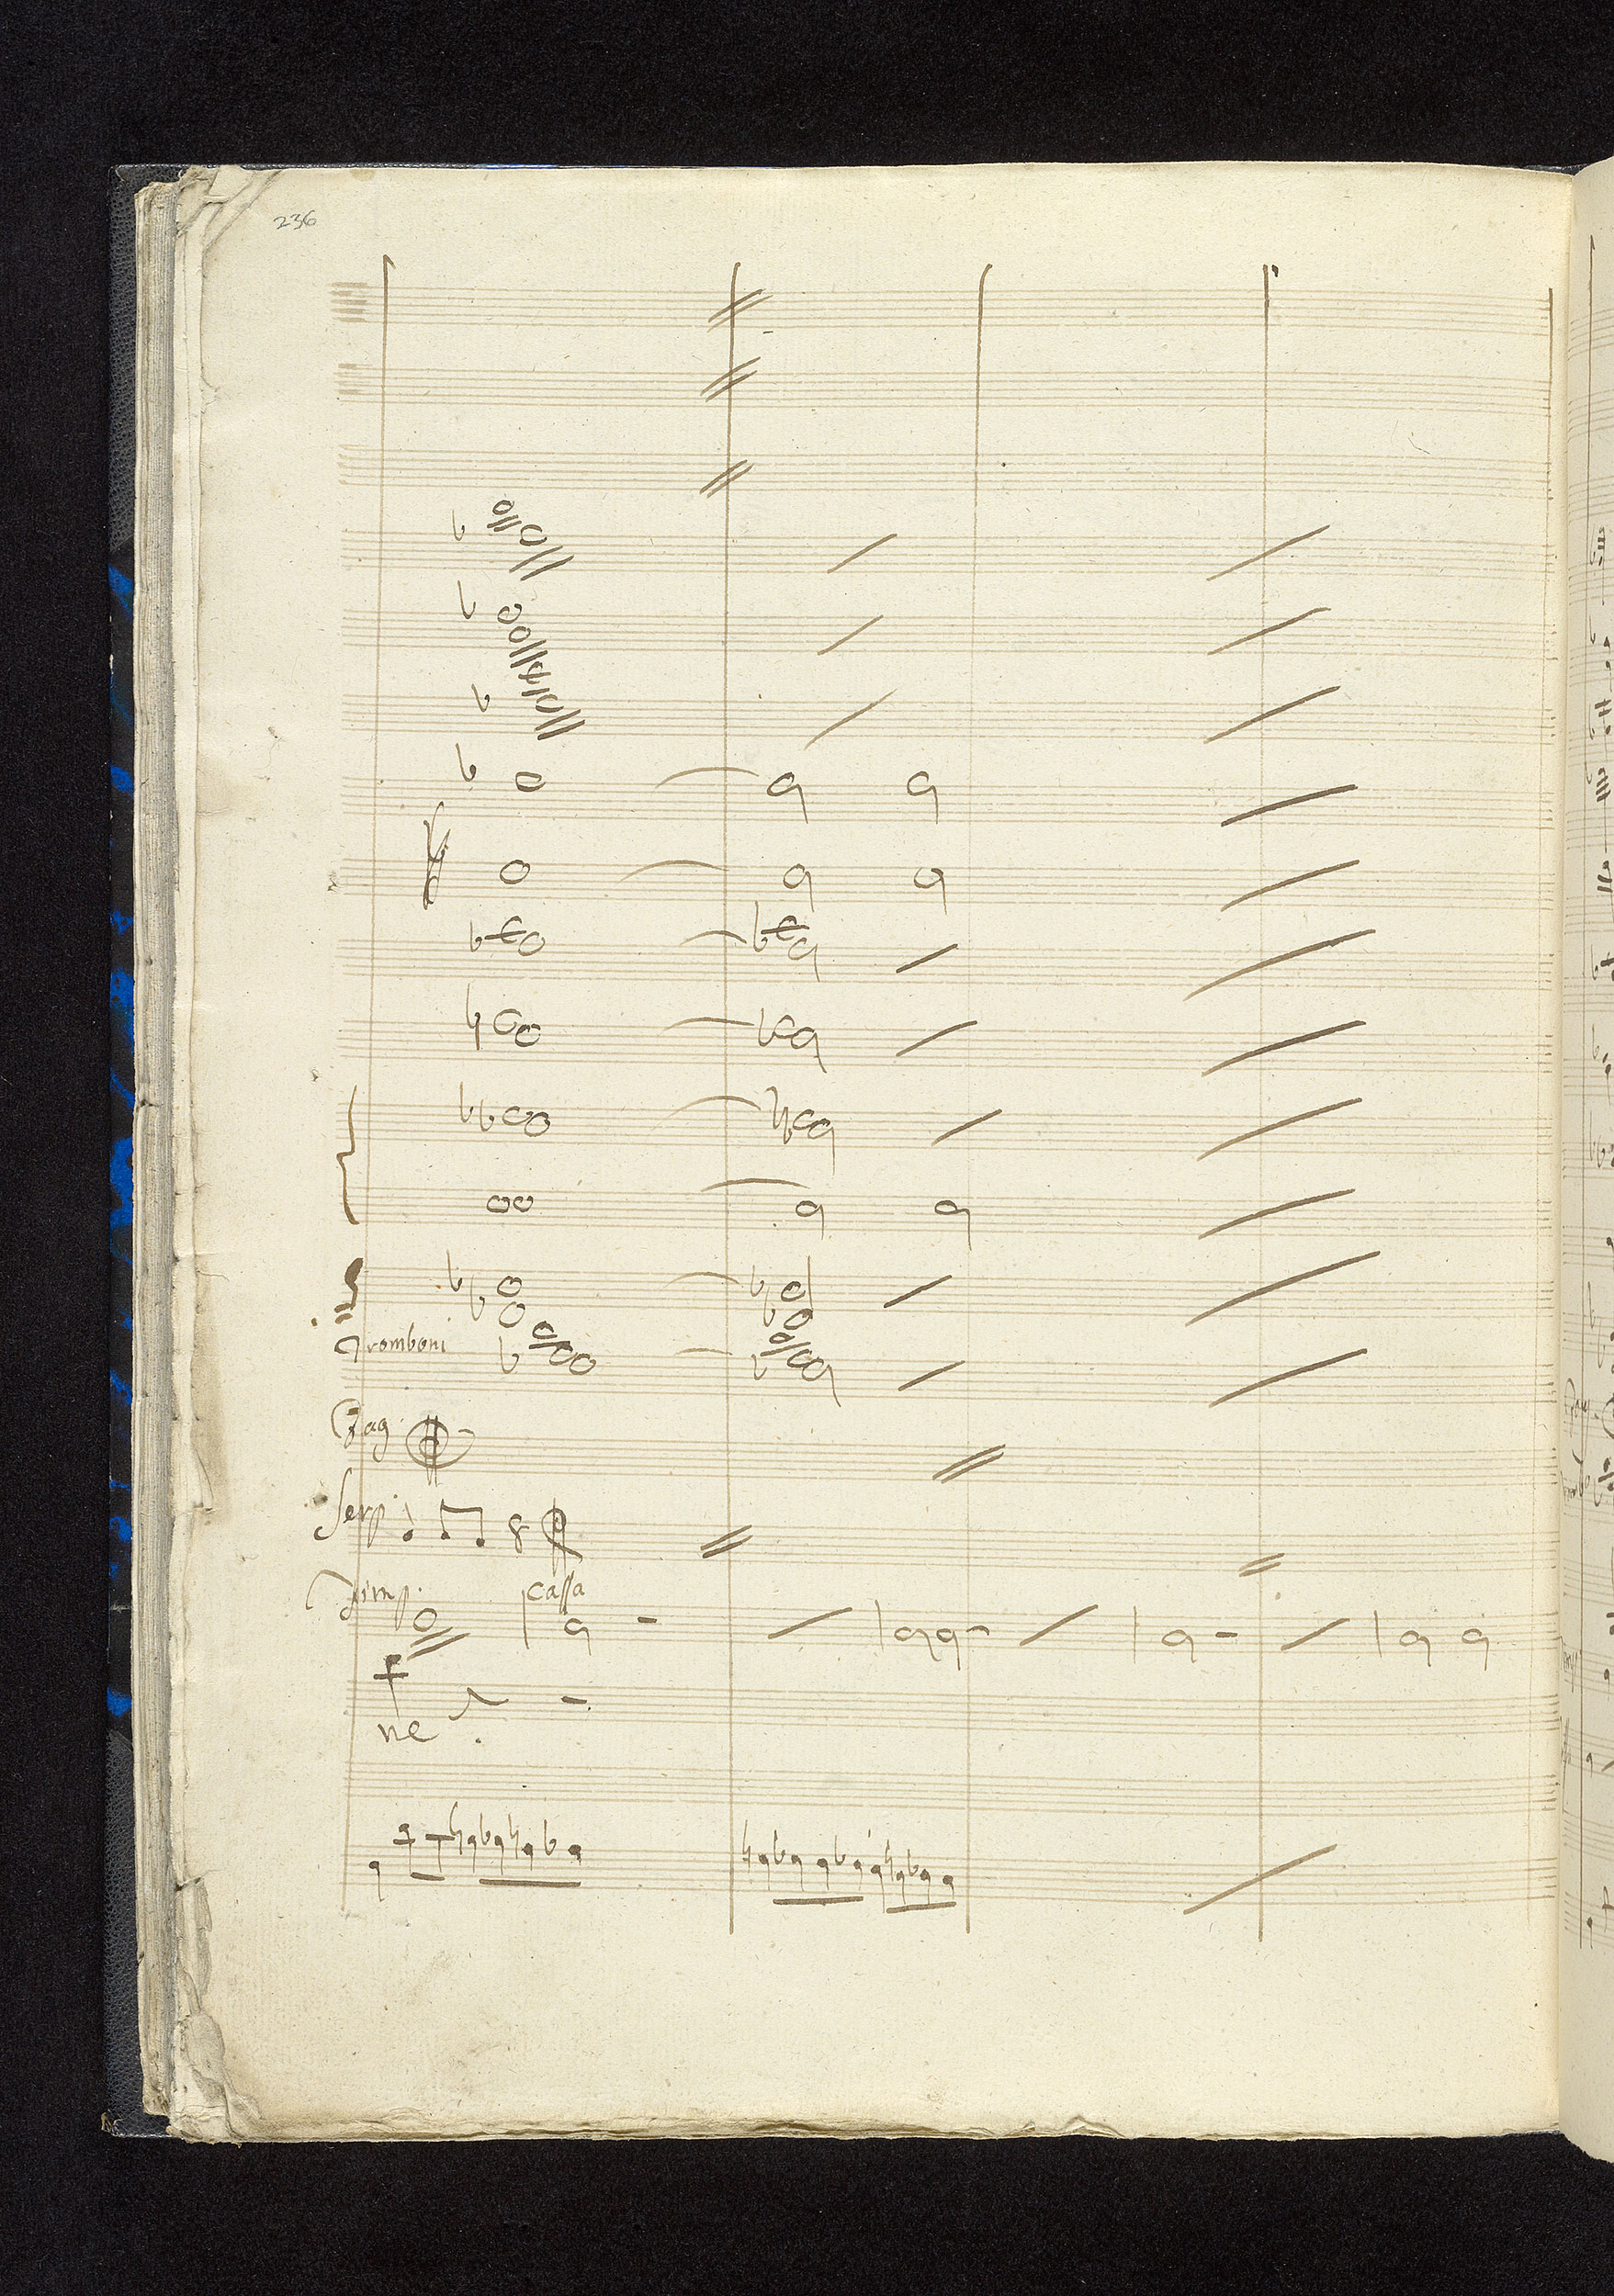 236
Tromboni
Fag.
Serp.
Timp.
cassa
ne